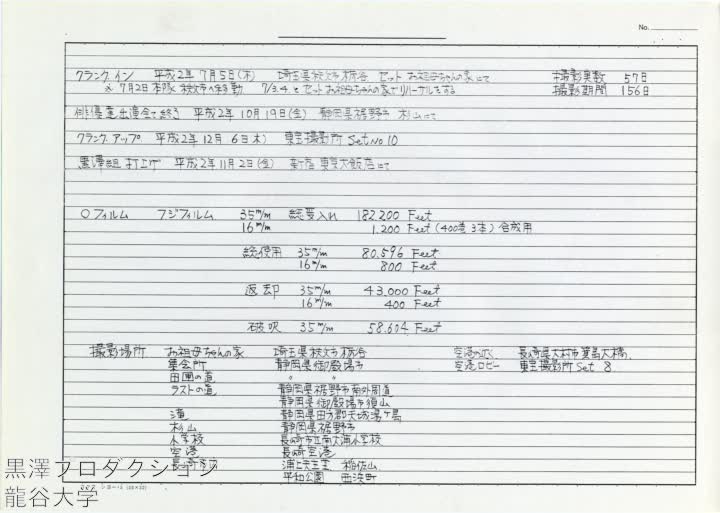 No.
クランク イン 平成2年7月5日(木) 埼玉県秩父市栃谷 セット お祖母ちゃんの家にて 撮影実数 57日
7月2日 本隊 秩父市へ移動 7/3.4.と セットお祖母ちゃんの家でリハーサルをする 撮影期間 156日
俳優 出演全て終り 平成2年10月19日(金) 静岡県裾野市 杉山にて
クランク アップ 平成2年12月6日(木) 東宝撮影所 Set No 10
黒澤組 打上げ 平成2年11月2日(金) 新宿 東京大飯店にて
○フィルム フジフィルム 35m/m 総受入れ 182.200 Feet
16m/m 1.200 Feet (400巻 3本) 合成用
総使用 35m/m 80.596 Feet
16m/m 800 Feet
返却 35m/m 43.000 Feet
16m/m 400 Feet
35m/m 58.604 Feet
撮影場所 お祖母ちゃんの家 埼玉県秩父市栃谷 空港 長崎県大村市箕島大橋
集会所 静岡県御殿場市 空港ロビー 東宝撮影所 Set 8
田圃の道 〃 〃
ラストの道 静岡県裾野市 外周道
静岡県御殿場市須山
滝 静岡県田方郡天城湯ヶ島
杉山 静岡県裾野市
小学校 長崎市立南大浦小学校
空港 長崎空港
長崎市内 浦上天主堂 稲佐山
平和公園
黒澤プロダクション
龍谷大学